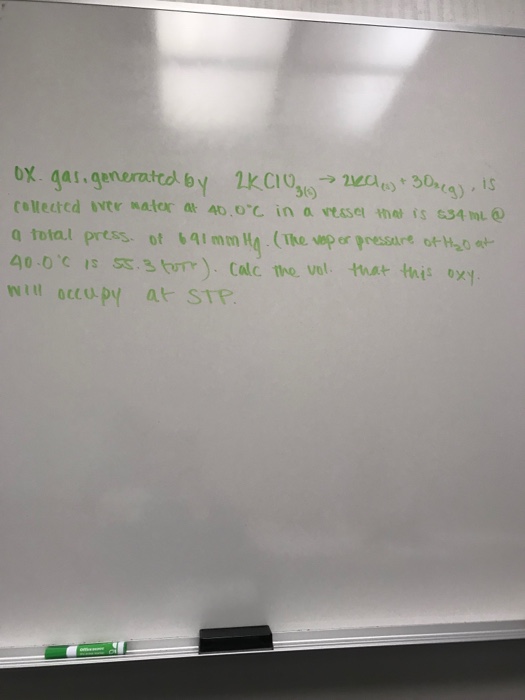 OX. gas, generated by 2KClO3(s) → 2KCl(s) + 3O2(g), is
collected over water at 40.0°C in a vessel that is 534 mL @
a total press. of 641 mmHg. (The vapor pressure of H2O at
40.0°C is 55.3 torr). Calc the vol. that this oxy.
will occupy at STP.